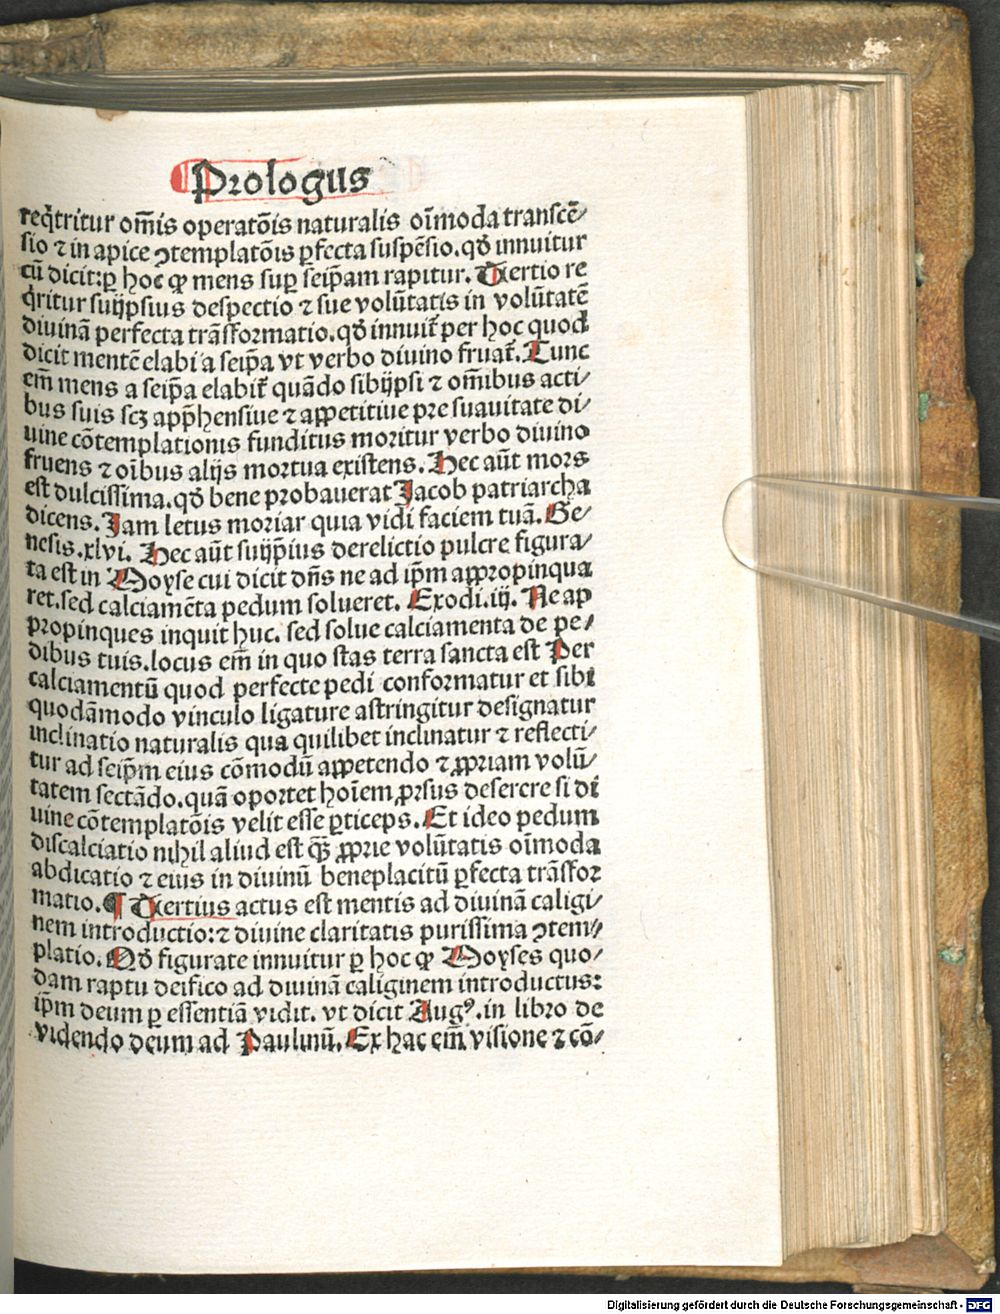 Prologus
req̃tritur om̃is operatõis naturalis oĩmoda transcẽ/
sio ⁊ in apice ꝯtemplatõis ꝑfecta suspẽsio. qđ innuitur
cũ dicit: ꝑ hoc ꝙ mens suꝑ seip̃am rapitur. Tertio re
q̃ritur suijpsius despectio ⁊ sue volũtatis in volũtatẽ
diuinã perfecta trãsformatio. qđ innuit᷑ per hoc quod
dicit mentẽ elabi a seip̃a vt verbo diuino fruat᷑. Tunc
em̃ mens a seip̃a elabit᷑ quãdo sibijpsi ⁊ om̃ibus acti/
bus suis scꝫ app̃hensiue ⁊ aꝓpetitiue pre suauitate di/
uine cõtemplationis funditus moritur verbo diuino
fruens ⁊ oĩbus alijs mortua existens. Hec aũt mors
est dulcissima. qđ bene probauerat Jacob patriarcha
dicens. Jam letus moriar quia vidi faciem tuã. Ge/
nesis. xlvi. Hec aũt suijp̃ius derelictio pulcre figura/
ta est in Moyse cui dicit dñs ne ad ip̃m appropinqua
ret. sed calciamẽta pedum solueret. Exodi. iij. Ne ap
propinques inquit huc. sed solue calciamenta de pe/
dibus tuis. locus em̃ in quo stas terra sancta est Per
calciamentũ quod perfecte pedi conformatur et sibi
quodãmodo vinculo ligature astringitur designatur
inclinatio naturalis qua quilibet inclinatur ⁊ reflecti/
tur ad seip̃m eius cõmodũ appetendo ⁊ ꝓpriam volũ/
tatem sectãdo. quã oportet hoĩem ꝓrsus deserere si di
uine cõtemplatõis velit esse ꝑticeps. Et ideo pedum
discalciatio nihil aliud est q̃ꝫ ꝓprie volũtatis oĩmoda
abdicatio ⁊ eius in diuinũ beneplacitũ ꝑfecta trãsfor
matio. ¶ Tertius actus est mentis ad diuinã caligi/
nem introductio: ⁊ diuine claritatis purissima ꝯtem/
platio. Qđ figurate innuitur ꝑ hoc ꝙ Moyses quo/
dam raptu deifico ad diuinã caliginem introductus:
ip̃m deum ꝑ essentiã vidit. vt dicit Augꝰ. in libro de
videndo deum ad Paulinũ. Ex hac em̃ visione ⁊ cõ/
Digitalisierung gefördert durch die Deutsche Forschungsgemeinschaft - DFG